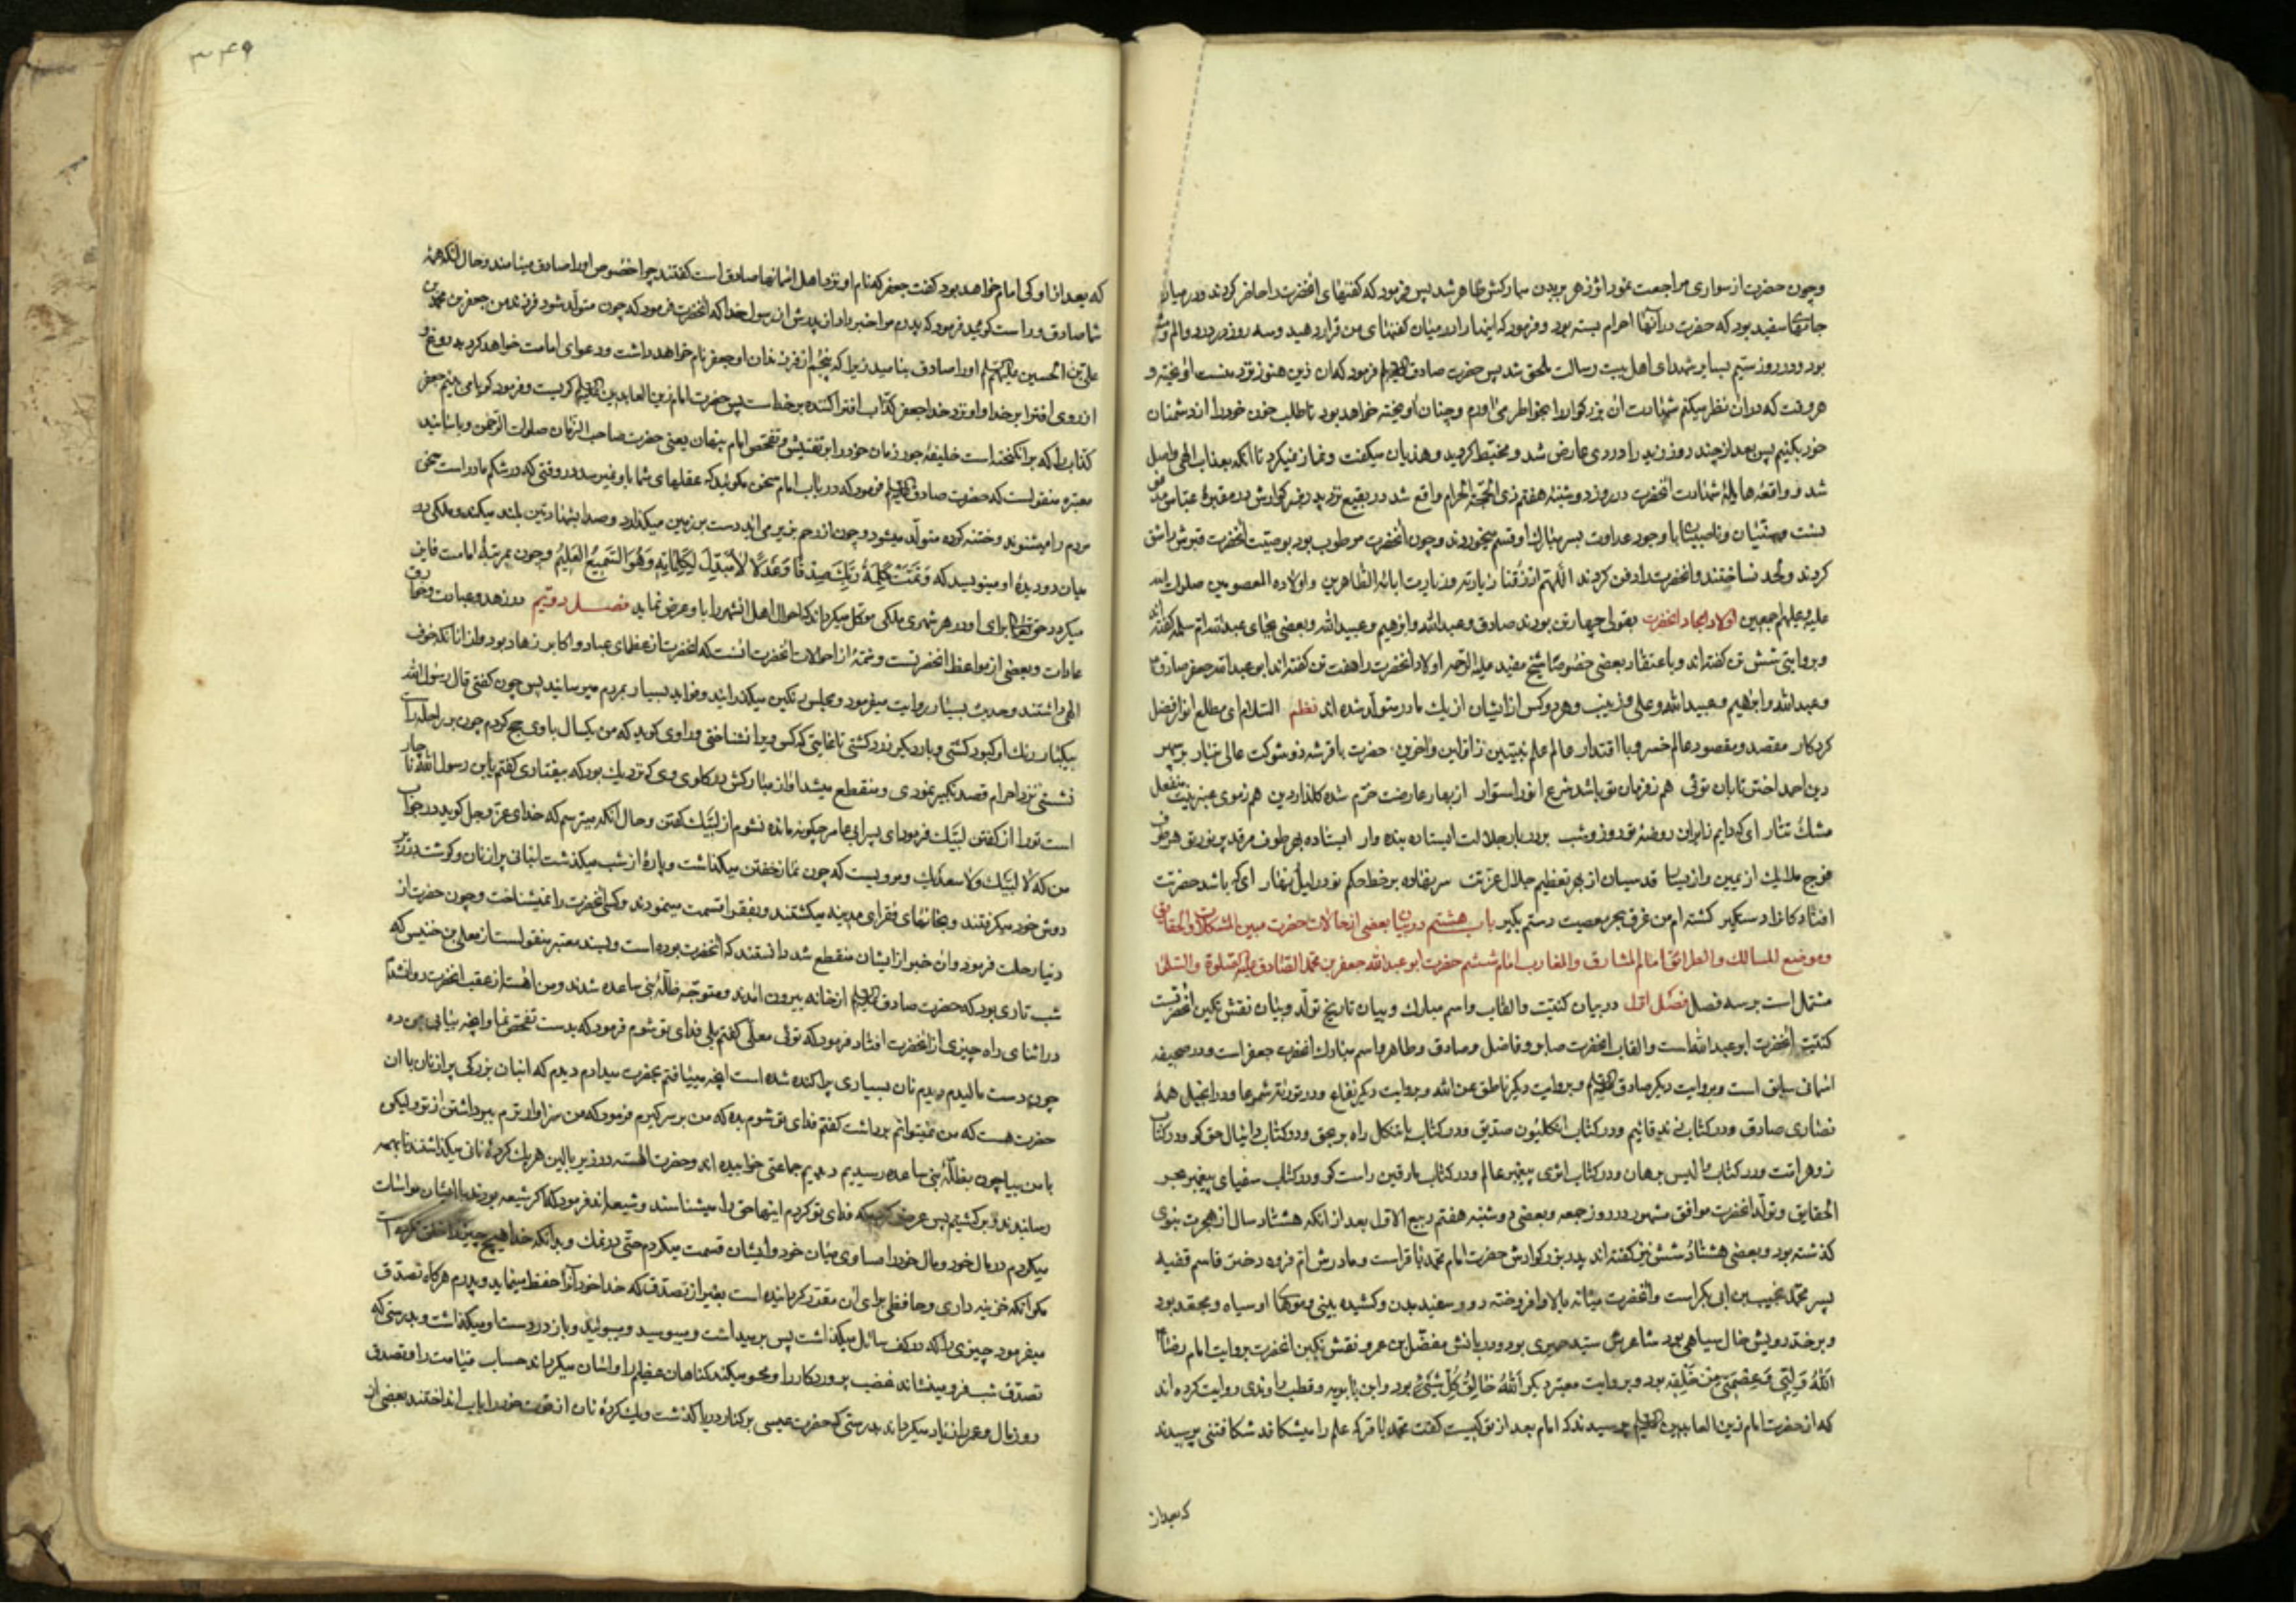 وچون حضرت از سواری مراجعت نمود اثر زهر بر بدن مبارکش ظاهر شد پس فرمود که کفنهای انحضرت را حاضر کردند و در میان
جامهای سفید بود که حضرت در آنها احرام بسته بود و فرمود که اینها را در میان کفنهای من قرار دهید و سه روز در درد و الم
بود و در روز سیم بسایر شهدای اهل بیت رسالت ملحق شد پس حضرت صادق فرمود که ان زین هنوز نزد منست اویخته و
هر وقت که در ان نظر میکنم شهادت ان بزرکوار را بخواطر می اورم و چنان اویخته خواهد بود تا طلب خون خود را از دشمنان
خود بکنیم پس بعد از چند روز زید را دردی عارض شد و مخبط کردید و هذیان میکفت و نماز نمیکرد تا آنکه بعذاب الهی واصل
شد و واقعهٔ هایلهٔ شهادت انحضرت در روز دوشنبه هفتم ذی الحجة الحرام واقع شد در بقیع نزد پدر بزرکوارش در مقبرهٔ عباس مدفون
است وسنّیان و ناصبیان با وجود عداوت بسر مبارک او قسم میخوردند و چون انحضرت مرطوب بود بوصیت انحضرت قبرش را شق
کردند و لحد نساختند و انحضرت را دفن کردند اللهم ارزقنا زیارته و زیارت ابائه الطاهرین و اولاده المعصومین صلوات الله
علیه وعلیهم اجمعین اولاد امجاد انحضرت بقولی چهار تن بودند صادق و عبدالله و ابراهیم و عبیدالله و بعضی بجای عبدالله ام سلمه کفته اند
و بروایتی شش تن کفته اند و باعتقاد بعضی خصوصًا شیخ مفید علیه الرحمه اولاد انحضرت را هفت تن کفته اند ابو عبدالله جعفر صادق
و عبدالله و ابراهیم و عبیدالله و علی و زینب و هر دو کس از ایشان از یک مادر متولد شده اند نظم السلام ای مطلع انوار فضل
کردکار مقصد و مقصود عالم خسرو با اقتدار عالم علم نبیین ز اولین و اخرین حضرت باقر شه ذو شوکت عالی تبار بر سپهر
دین احمد اختر تابان توئی هم ز فرمان تو باشد شرع انور استوار از بهار عارضت خرّم شده کلذار دین هم ز موی عنبرینت منفعل
مشک تتار ای که دایم زایران روضهٔ تو روز و شب بر در بار جلالت ایستاده بنده وار ایستاده بهر طوف مرقد پر نور تو هر طرف
فوج ملایک از یمین و از یسار قدسیان از بهر تعظیم جلال عزتت سر نهاده بر خط حکم تو در لیل و نهار ای که باشد حضرتت
افتادکانرا دستکیر کشته ام من غرق بحر معصیت دستم بکیر باب هشتم در بیان بعضی از حالات حضرت مبین المشکلات و الحقایق
و موضح المسالک و الطرائق امام المشارق و المغارب امام ششم حضرت ابو عبدالله جعفر بن محمد الصادق علیه الصلوة والسلام
مشتمل است بر سه فصل فصل اوّل در بیان کنیت و القاب و اسم مبارک و بیان تاریخ تولد و بیان نقش نکین انحضرت
کنیت انحضرت ابو عبدالله است و القاب انحضرت صابر و فاضل و صادق و طاهر و اسم مبارک انحضرت جعفر است و در صحیفه
اسمانی سابق است و بروایت دیکر صادق و بروایت دیکر ناطق عن الله و بروایت دیکر نفاع و در تورات شموعا و در انجیل همهٔ
نصاری صادق و در کتاب زند قائیم و در کتاب انکلیون صدیق و در کتاب باتنکل راه بر بحق و در کتاب دانیال حق کو و در کتاب
زوهر است و در کتاب برهان و در کتاب اثری پیغمبر عالم و در کتاب بارقین راست کو و در کتاب سفیای پیغمبر مجر
الحقایق و تولد انحضرت موافق مشهور در روز جمعه و بعضی دوشنبه هفتم ربیع الاول بعد از انکه هشتاد سال از هجرت نبوی
کذشته بود و بعضی هشتاد شش نیز کفته اند پدر بزرکوارش حضرت امام محمد باقر است و مادرش ام فروه دختر قاسم فقیه
پسر محمد نجیب بن ابی بکر است و انحضرت میانه بالا و افروخته رو و سفید بدن و کشیده بینی و مویها او سیاه و مجعد بود
و بر خد رویش خال سیاهی بود شاعرش سید حمیری بود و دربانش مفضل بن عمر و نقش نکین انحضرت بروایت امام رضا
الله وَلِیّی وَعِصْمَتی مِن خَلْقِه بود و بروایت معتبر دیکر اَللهُ خَالِقُ کُلِّ شَیْءٍ بود و ابن بابویه و قطب راوندی روایت کرده اند
که از حضرت امام زین العابدین پرسیدند که امام بعد از تو کیست کفت محمد باقر که علم را میشکافد شکافتنی پرسیدند
که بعد از
۳۴۹
که بعد از او کی امام خواهد بود کفت جعفر که نام او نزد اهل اسمانها صادق است کفتند چرا خصوص او را صادق مینامند و حال انکه همهٔ
شما صادق و راست کوئید فرمود که پدرم مرا خبر داد از پدرش از رسول خدا که انحضرت فرمود که چون متولد شود فرزند من جعفر بن محمد بن
علی بن الحسین علیهم السلم او را صادق بنامید زیرا که پنجم از فرزندان او جعفر نام خواهد داشت و دعوای امامت خواهد کرد بدروغ و
از روی افترا بر خدا و او نزد خدا جعفر کذاب افترا کننده بر خدا است پس حضرت امام زین العابدین کریست و فرمود کویا می بینم جعفر
کذاب را که برانکیخته است خلیفهٔ جور زمان خود را بر تفتیش و تفحص امام پنهان یعنی حضرت صاحب الزمان صلوات الرحمن و باسانید
معتبره منقولست که حضرت صادق فرمود که در باب امام سخن مکوئید که عقلهای شما باو نمیرسد در وقتی که در شکم مادر است سخن
مردم را میشنود و ختنه کرده متولد میشود و چون از رحم بزیر می اید دست بر زمین میکذارد و صدا بشهادتین بلند میکند و ملکی در
میان دو دیدهٔ او مینویسد که وَتَمَّتْ کَلِمَةُ رَبِّکَ صِدْقًا وَعَدْلًا لَامُبَدِّلَ لِکَلِمَاتِهِ وَهُوَ السَّمیعُ العَلیمُ و چون بمرتبهٔ امامت فایز
میکردد حق تعالی برای او در هر شهری ملکی موکل میکرداند که احوال اهل انشهر را باو عرض نماید فصل دویّم در زهد و عبادت و خوارق
عادات و بعضی از مواعظ انحضرتست و شمّهٔ از احوالات انحضرت انست که انحضرت از عظمای عباد و اکابر زهاد بود و از انانکه خوف
الهی داشتند و حدیث بسیار روایت میفرمود و مجلس رنکین میکذرانند و فواید بسیار بمردم میرسانید پس چون کفتی قال رسول الله
بیکبار رنک او کبود کشتی و بار دیکر زرد کشتی تا غایتی که کس ویرا نشناختی و راوی کوید که من یکسال باوی حج کردم چون بر راحله راست
نشستی نزد احرام قصد تکبیر نمودی و منقطع میشد اواز مبارکش در کلوی وی که نزدیک بود که بیفتادی کفتم یابن رسول الله ناچار
است تو را از کفتن لبیک فرمود ای پسر ابی عامر چکونه مانده نشوم از لبیک کفتن و حال آنکه میترسم که خدای عز و جل کوید در جواب
من که لا لبیک ولا سعدیک و مرویست که چون نماز خفتن میکذاشت و پارهٔ از شب میکذشت انبانی پر از نان و کوشت و زر بر
دوش خود میکرفتند و بخانهای فقرای مدینه میکشتند و بفقرا قسمت مینمودند و کسی انحضرت را نمیشناخت و چون حضرت از
دنیا رحلت فرمود و ان خبر از ایشان منقطع شد دانستند که انحضرت بوده است و بسند معتبر منقولست از معلی بن خنیس که
شب تاری بود که حضرت صادق از خانه بیرون امدند و متوجه ظلّهٔ بنی ساعده شدند و من اهسته از عقب انحضرت روانشدم
در اثنای راه چیزی از انحضرت افتاد فرمود که توئی معلّی کفتم بلی فدای تو شوم فرمود که بدست تفحص نما و انچه بیابی بمن ده
چون دست مالیدم دیدم نان بسیاری پراکنده شده است انچه مییافتم بحضرت میدادم دیدم که انبان بزرکی پر از نان با ان
حضرت هست که من نمیتوانم برداشت کفتم فدای تو شوم بده که من بر سر کیرم فرمود که من سزاوارترم ببرداشتن از تو و لیکن
با من بیا چون بظلّهٔ بنی ساعده رسیدیم دیدیم جماعتی خوابیده اند و حضرت اهسته در زیر بالین هر یک کردهٔ نانی میکذاشتند تا بهمه
رسانیدند و برکشتیم پس عرض کردم که فدای تو کردم اینها حق را میشناسند و شیعه اند فرمود که اکر شیعه بودند با ایشان مواسات
میکردم در مال خود و مال خود را مساوی میان خود و ایشان قسمت میکردم حتی در نمک و بدانکه خدا هیچ چیز را خلق نکرده است
مکر آنکه خزینه داری و حافظی برای ان مقرر کردانیده است بغیر از تصدق که خدا خود آنرا حفظ مینماید و پدرم هرکاه تصدق
میفرمود چیزی را که در کف سائل میکذاشت پس بر میداشت و میبوسید و میبوئید و باز در دست او میکذاشت و بدرستی که
تصدق شب فرو مینشاند غضب پروردکار را و محو میکند کناهان عظیم را و اسان میکرداند حساب قیامت را و تصدق
روز مال و عمر را زیاد میکرداند بدرستی که حضرت عیسی بر کنار دریا کذشت و یک کردهٔ نان از قوت خود را باب انداختند بعضی از